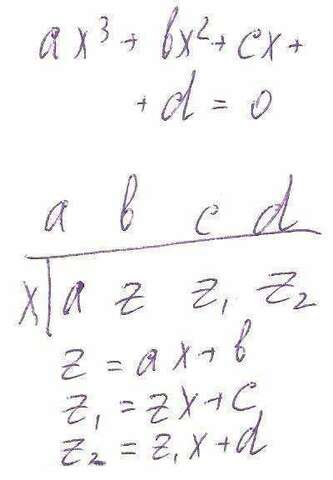 ax³ + bx² + cx +
+ d = 0
a b c d
x a z z₁ z₂
z = ax + b
z₁ = zx + c
z₂ = z₁x + d